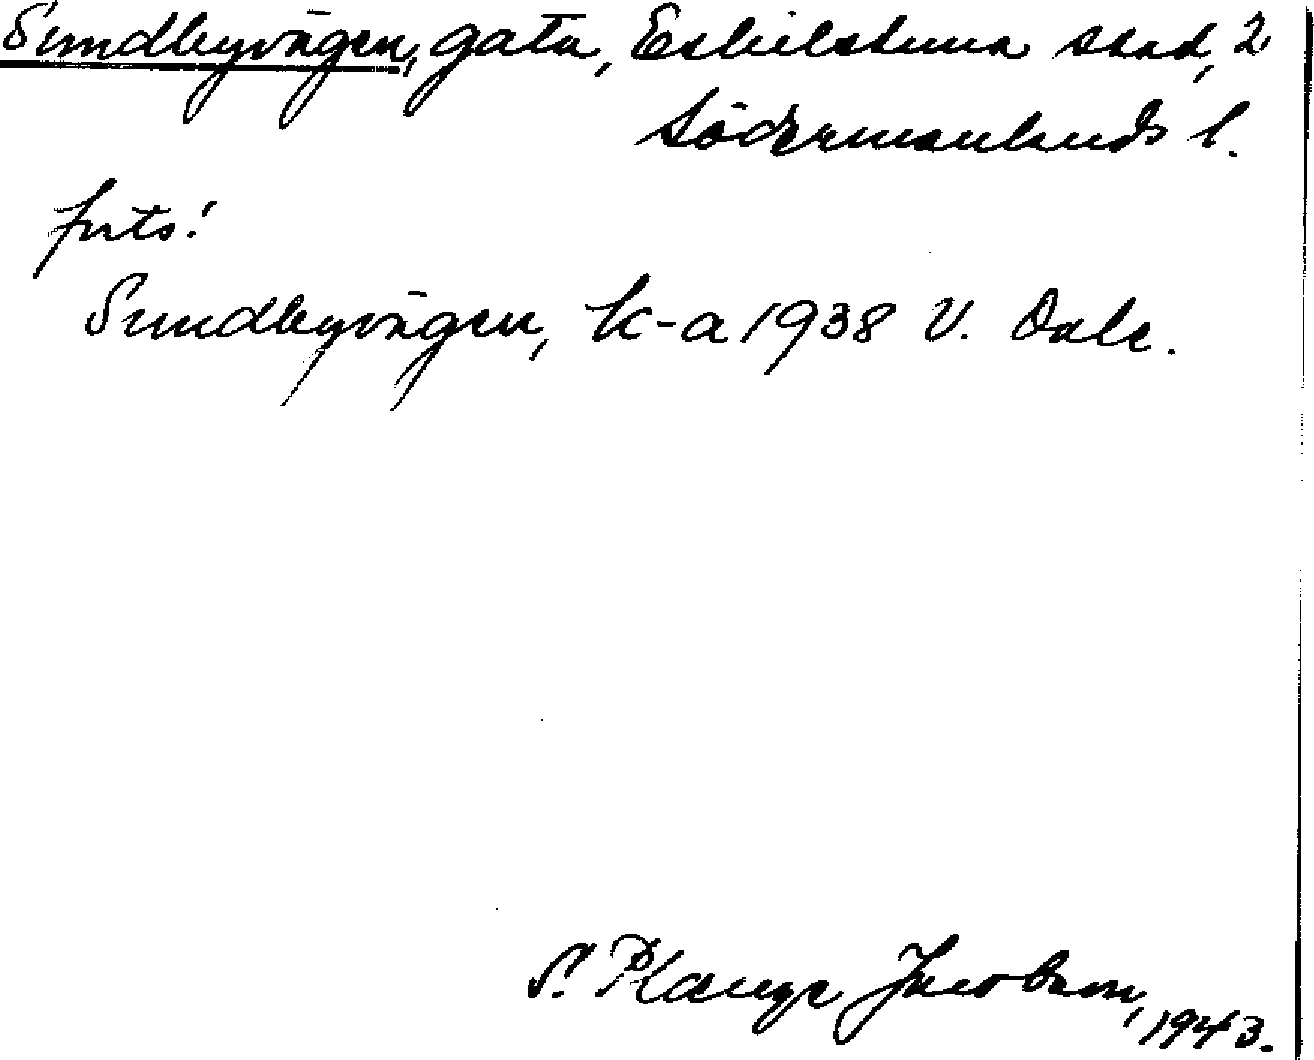 Sundbyvägen, gata, Eskilstuna stad, 2
Södermanlands l.
forts.
Sundbyvägen, k-a 1938 V. Dale.
S. Plange Jacobson, 1943.